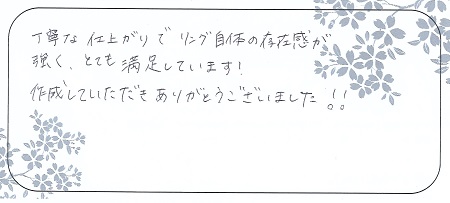 丁寧な仕上がりでリング自体の存在感が
強く、とても満足しています!
作成していただきありがとうございました!!